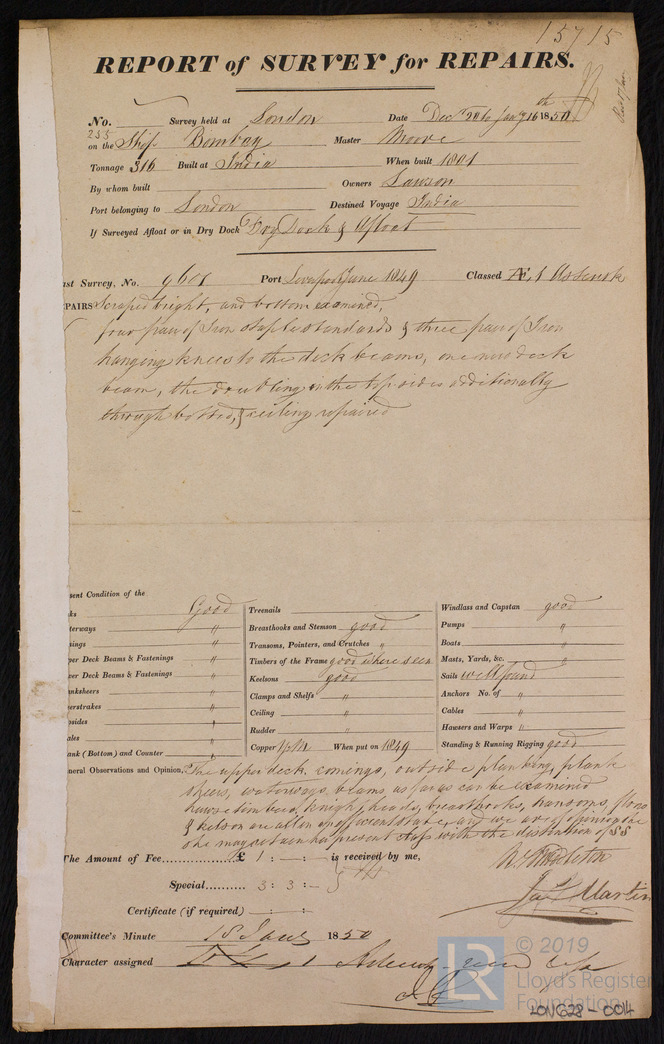 15715
REPORT of SURVEY for REPAIRS.
No. Survey held at London Date Decr 20 to Jany 16th 1850
255
on the Ship Bombay Master Moore
Tonnage 316 Built at India When built 1801
By whom built Owners Lawson
Port belonging to London Destined Voyage India
If Surveyed Afloat or in Dry Dock Dry Dock & Afloat
ast Survey, No. 9601 Port Liverpool June 1849 Classed Æ 1
PAIRS Scraped bright, and bottom examined,
four pair of Iron staple standards & three pair of Iron
hanging knees to the deck beams, one new deck
beam, the doubling in the topsides additionally
through bolted, & ceiling repaired
sent Condition of the
ks Good
terways "
sings "
per Deck Beams & Fastenings "
wer Deck Beams & Fastenings "
anksheers "
eerstrakes "
psides "
ales "
ank (Bottom) and Counter "
Treenails
Breasthooks and Stemson good
Transoms, Pointers, and Crutches "
Timbers of the Frame good where seen
Keelsons good
Clamps and Shelfs "
Ceiling "
Rudder "
Copper Y/M When put on 1849
Windlass and Capstan good
Pumps "
Boats "
Masts, Yards, &c. "
Sails well found
Anchors No. of "
Cables "
Hawsers and Warps "
Standing & Running Rigging good
neral Observations and Opinion, The upper deck, comings, outside planking, plank
sheers, waterways, beams, as far as can be examined
hawse timbers, knight heads, breasthooks, transoms, floors
& kelson are all in efficient state, and we are of opinion she
she may retain her present class with the destination of SS
The Amount of Fee £ 1 : - : - is received by me,
W. Middleton
Special 3 : 3 : -
Jas Martin
Certificate (if required) : :
Committee's Minute 18 Jany 1850
Character assigned
© 2019
LR
Lloyd's Register
Foundation
LON628-0014